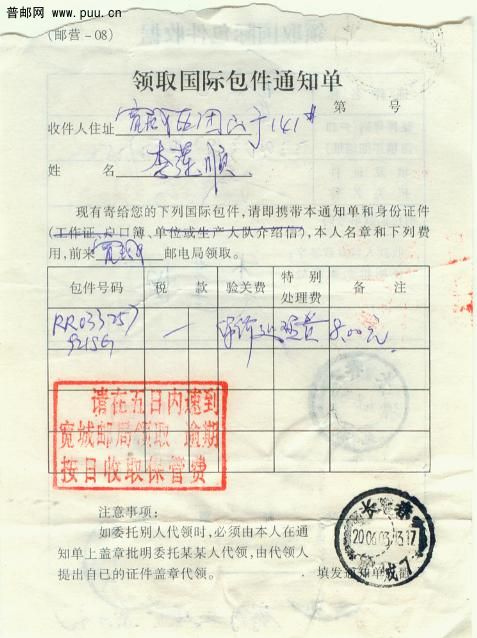 普邮网
www.puu.cn
(邮营－08)
领取国际包件通知单
第 号
收件人住址 宽城区团山子141#
姓 名 李莲顺
现有寄给您的下列国际包件，请即携带本通知单和身份证件
(工作证、户口簿、单位或生产大队介绍信)，本人名章和下列费
用，前来 宽城 邮电局领取。
包件号码 税 款 验关费 特 别 处理费 备 注
一 处理费 8.00元
请在五日内速到
宽城邮局领取 逾期
按日收取保管费
注意事项：
如委托别人代领时，必须由本人在通
知单上盖章批明委托某某人代领，由代领人
提出自已的证件盖章代领。
填发通知单戳
长春
2006.03.13.17
城7